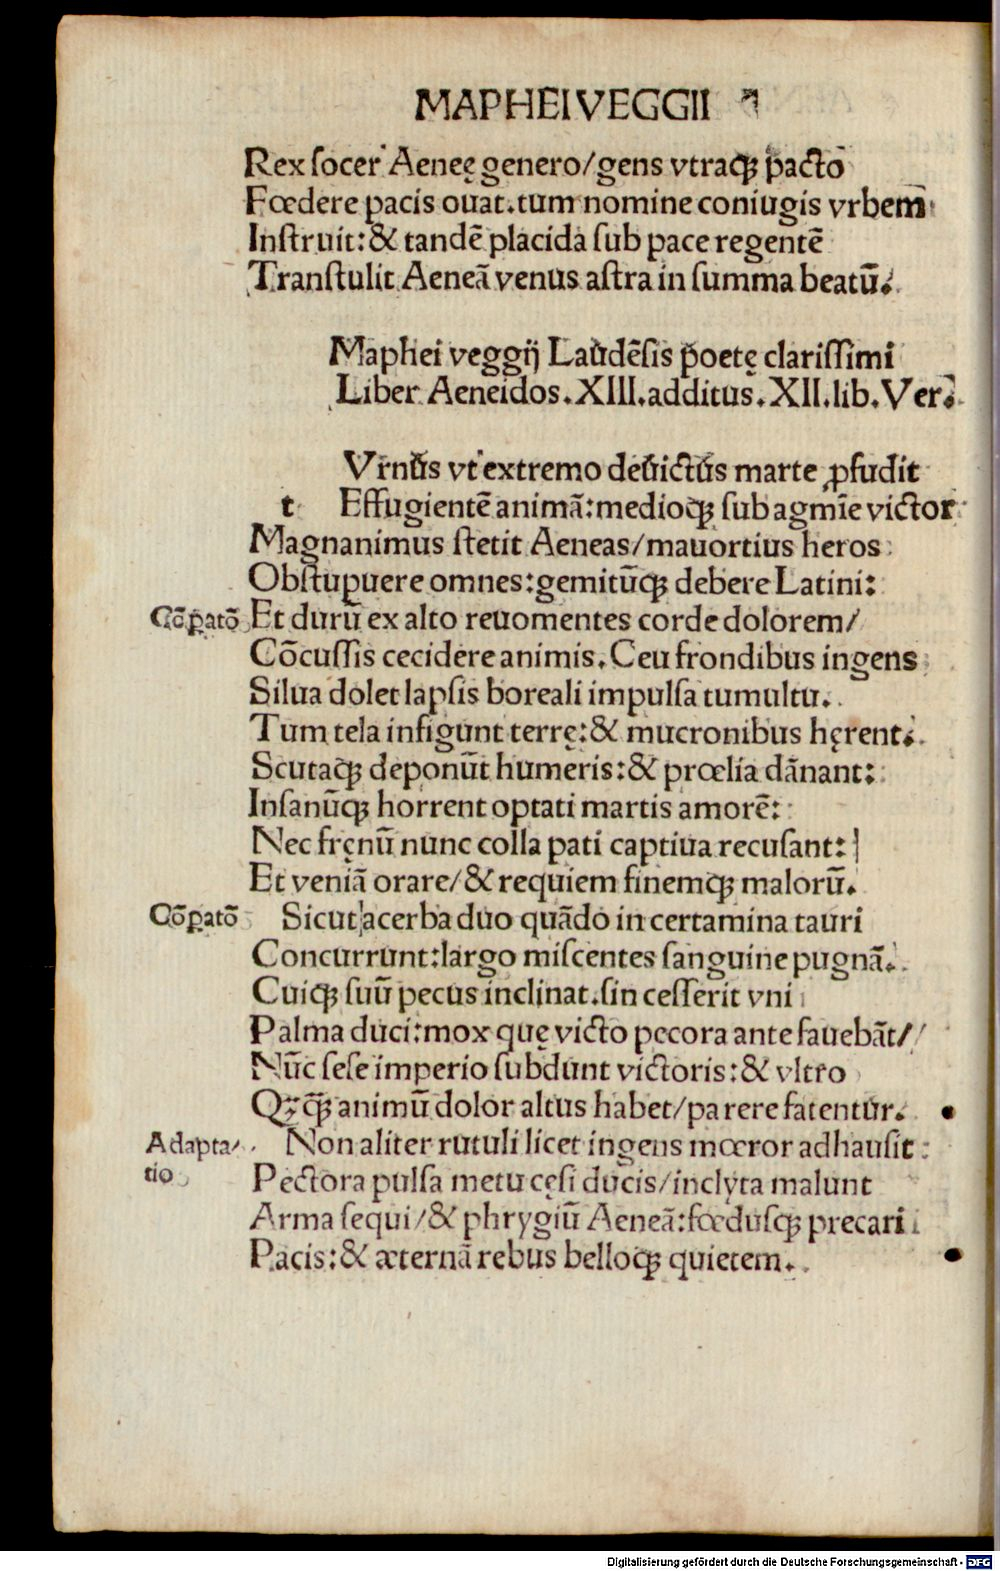 MAPHEI VEGGII
Rex socer Aeneę genero/gens vtraqꝫ pacto
Fœdere pacis ouat.tum nomine coniugis vrbem
Instruit:& tandē placida sub pace regentē
Transtulit Aeneā venus astra in summa beatū.
Maphei veggij Laudēsis poetę clarissimi
Liber Aeneidos.XIII.additus.XII.lib.Ver.
Vrnus vt extremo deuictus marte ꝓfudit
t Effugientē animā:medioqꝫ sub agmīe victor
Magnanimus stetit Aeneas/mauortius heros
Obstupuere omnes:gemitūqꝫ debere Latini:
Cōꝑatō Et durū ex alto reuomentes corde dolorem/
Cōcussis cecidere animis.Ceu frondibus ingens
Silua dolet lapsis boreali impulsa tumultu.
Tum tela infigunt terrę:& mucronibus hęrent.
Scutaqꝫ deponūt humeris:& prœlia dānant:
Insanūqꝫ horrent optati martis amorē:
Nec fręnū nunc colla pati captiua recusant:
Et veniā orare/& requiem finemqꝫ malorū.
Cōꝑatō Sicut acerba duo quādo in certamina tauri
Concurrunt:largo miscentes sanguine pugnā.
Cuiqꝫ suū pecus inclinat.sin cesserit vni
Palma duci:mox quę victo pecora ante fauebāt/
Nūc sese imperio subdunt victoris:& vltro
Qꝫqꝫ̄ animū dolor altus habet/parere fatentur.
Adapta/ Non aliter rutuli licet ingens mœror adhausit
tio Pectora pulsa metu cęsi ducis/inclyta malunt
Arma sequi/& phrygiū Aeneā:fœdusqꝫ precari
Pacis:& æternā rebus belloqꝫ quietem.
Digitalisierung gefördert durch die Deutsche Forschungsgemeinschaft - DFG